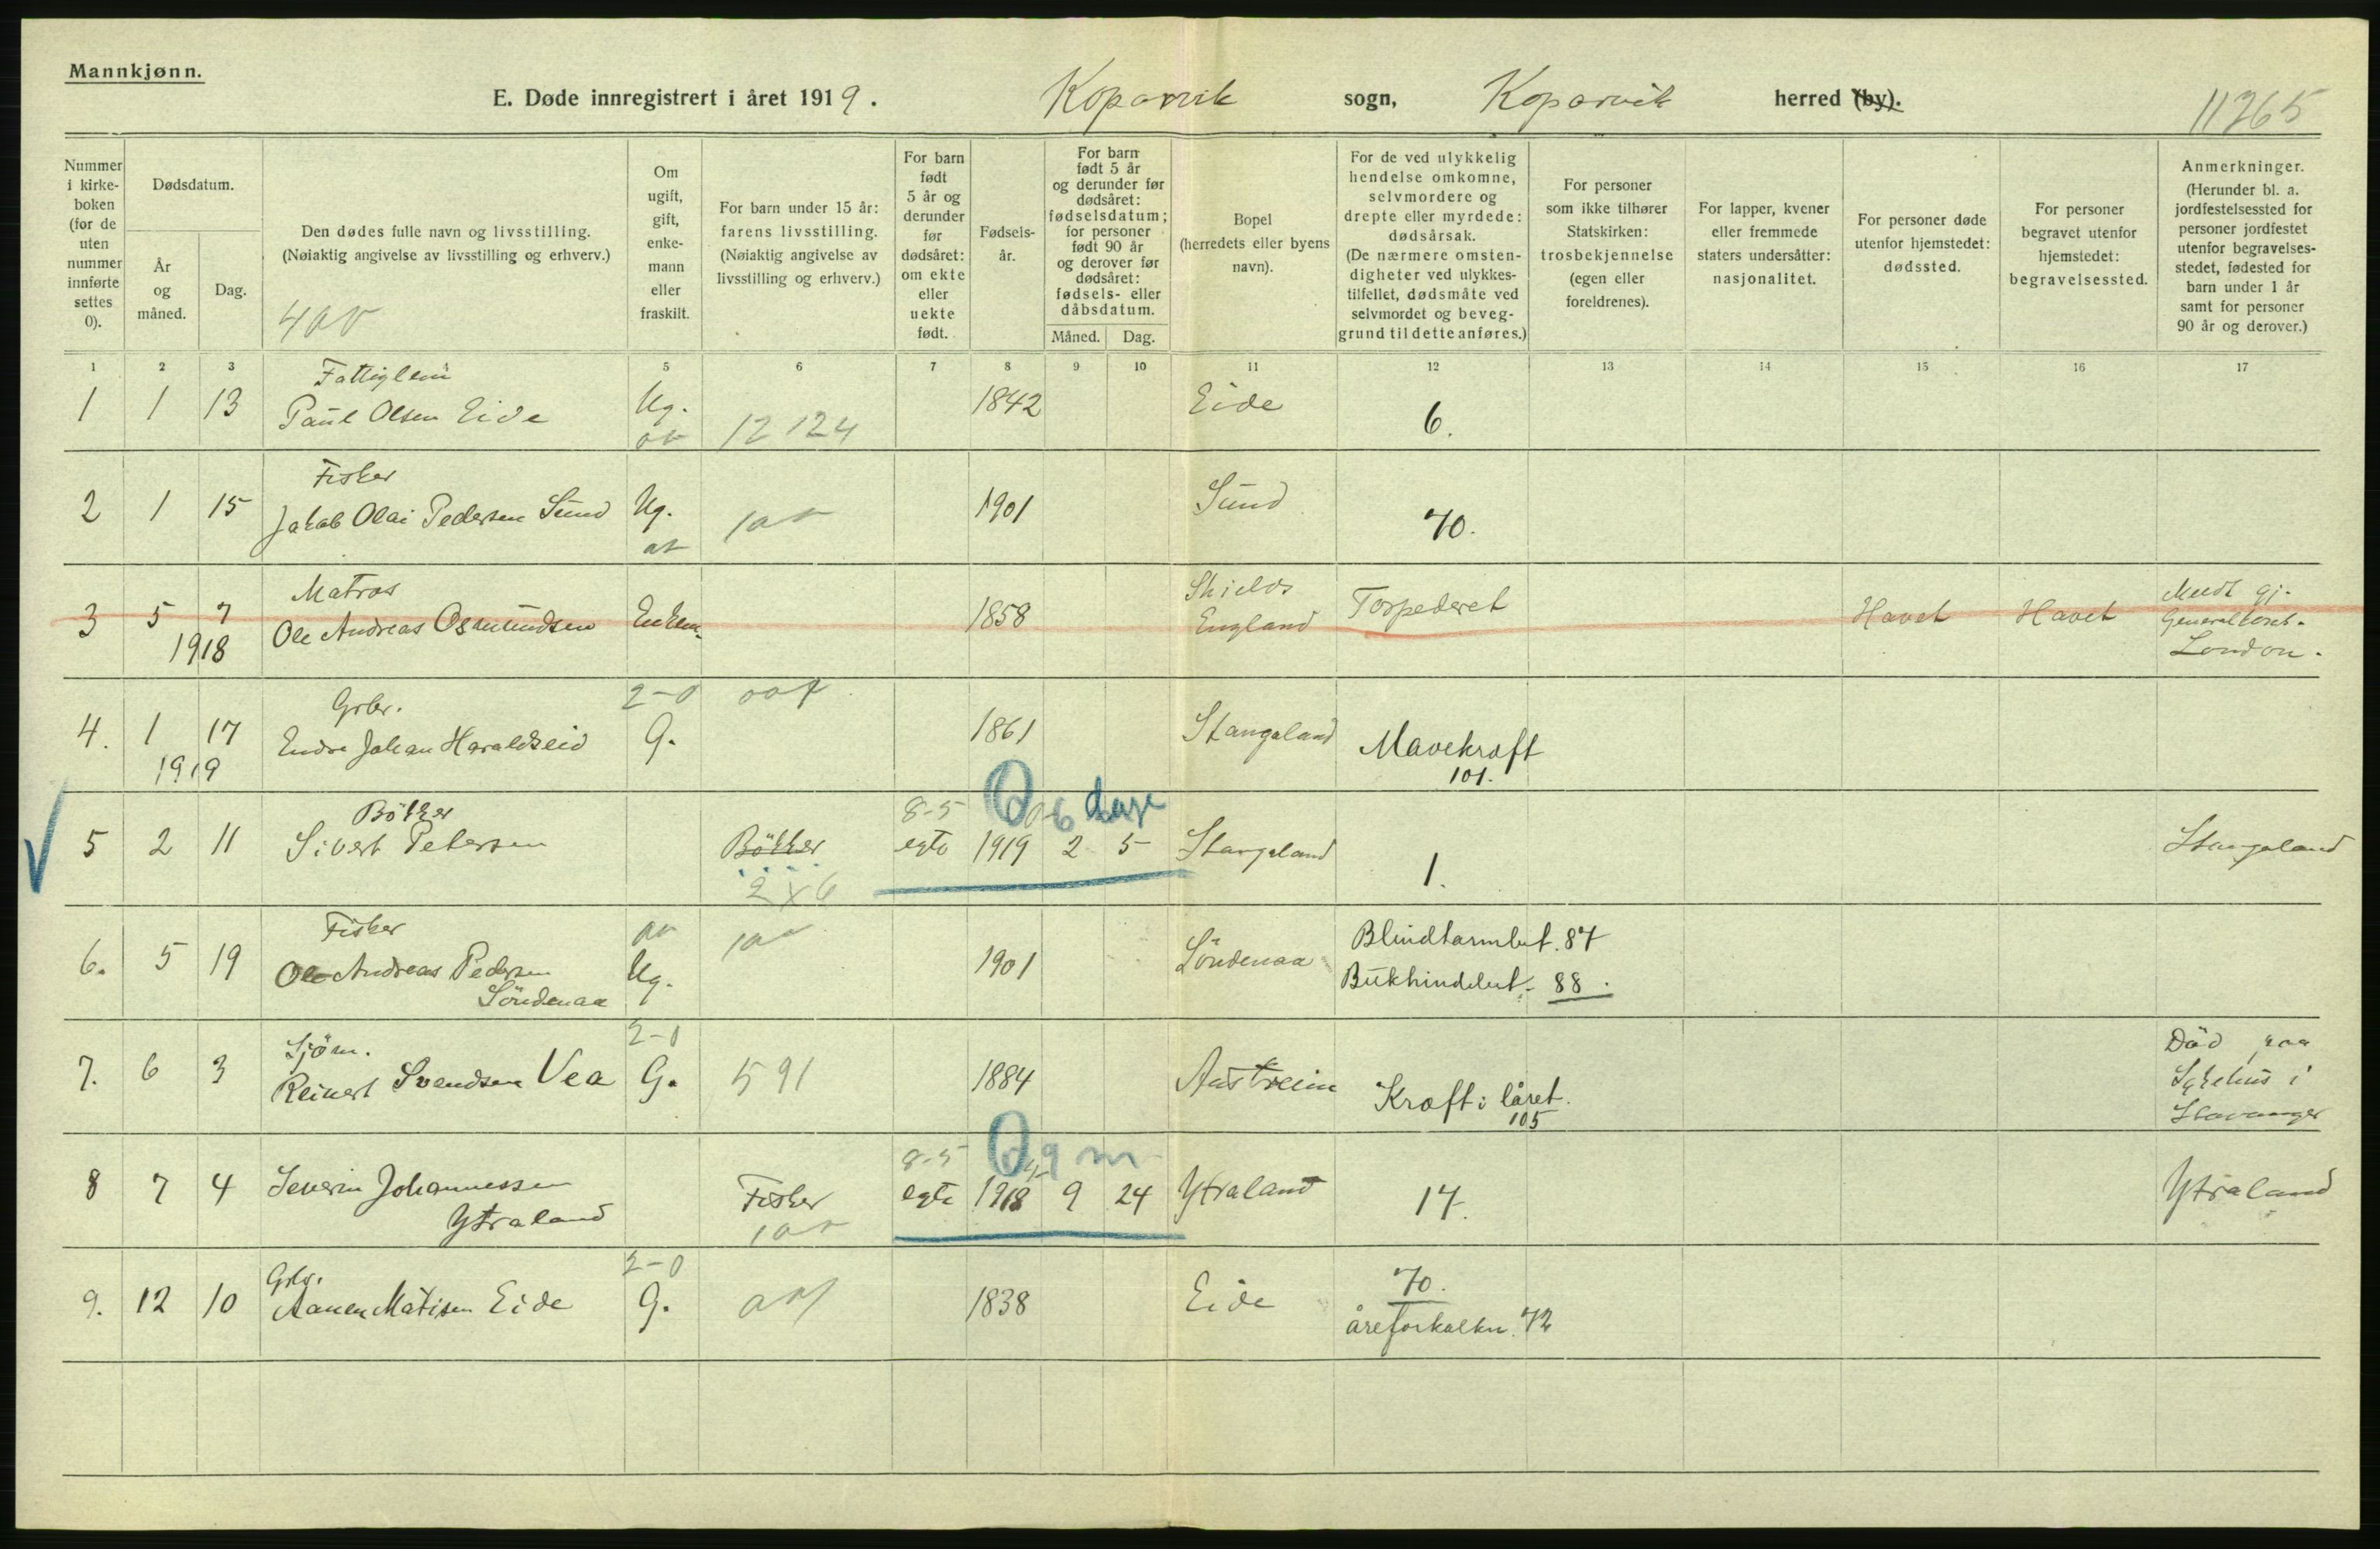 Mannkjønn.
E. Døde innregistrert i året 1919. Kopervik sogn, Kopervik herred (by).
11265
Nummer i kirkeboken (for de uten nummer innførte settes 0).
Dødsdatum.
År og måned.
Dag.
Den dødes fulle navn og livsstilling.
(Nøiaktig angivelse av livsstilling og erhverv.)
Om ugift, gift, enkemann eller fraskilt.
For barn under 15 år: farens livsstilling.
(Nøiaktig angivelse av livsstilling og erhverv.)
For barn født 5 år og derunder før dødsåret: om ekte eller uekte født.
Fødselsår.
For barn født 5 år og derunder før dødsåret: fødselsdatum; for personer født 90 år og derover før dødsåret: fødsels- eller dåbsdatum.
Måned. Dag.
Bopel (herredets eller byens navn).
For de ved ulykkelig hendelse omkomne, selvmordere og drepte eller myrdede: dødsårsak.
(De nærmere omstendigheter ved ulykkestilfellet, dødsmåte ved selvmordet og beveggrund til dette anføres.)
For personer som ikke tilhører Statskirken: trosbekjennelse (egen eller foreldrenes).
For lapper, kvener eller fremmede staters undersåtter: nasjonalitet.
For personer døde utenfor hjemstedet: dødssted.
For personer begravet utenfor hjemstedet: begravelsessted.
Anmerkninger.
(Herunder bl. a. jordfestelsessted for personer jordfestet utenfor begravelsesstedet, fødested for barn under 1 år samt for personer 90 år og derover.)
1 2 3 5 6 7 8 9 10 11 12 13 14 15 16 17
Fattiglem
1 1 13 Paul Olsen Eide Ug. 12124 1842 Eide 6.
Fisker
2 1 15 Jakob Olai Pedersen Sund Ug. 1901 Sund 70.
Matros
3 5 7 Ole Andreas Osmundsen Enkem. 1858 Shields England Torpederet Havet Havet Meldt gj. Generalkons. London.
1918
Grbr. 2-0
4. 1 17 Endre Johan Haraldseid G. 1861 Stangeland Mavekræft
1919 101.
Bökker 8-5 0 6 dage
5 2 11 Sivert Petersen Bökker egte 1919 2 5 Stangeland 1. Stangeland
2x6
Fisker
6. 5 19 Ole Andreas Pedersen Söndenaa Ug. 1901 Söndenaa Blindtarmbet. 87
Bukhindebet. 88.
Sjöm. 2-0
7. 6 3 Reinert Svendsen Vea G. 591 1884 Austreim Kræft i låret. Död paa Sykehus i Stavanger
105
8-5 0 9 m
8 7 4 Severin Johannessen Ytraland Fisker egte 1918 9 24 Ytraland 17. Ytraland
Grbr. 2-0
9. 12 10 Aanen Matisen Eide G. 1838 Eide 70.
åreforkalkn. 72